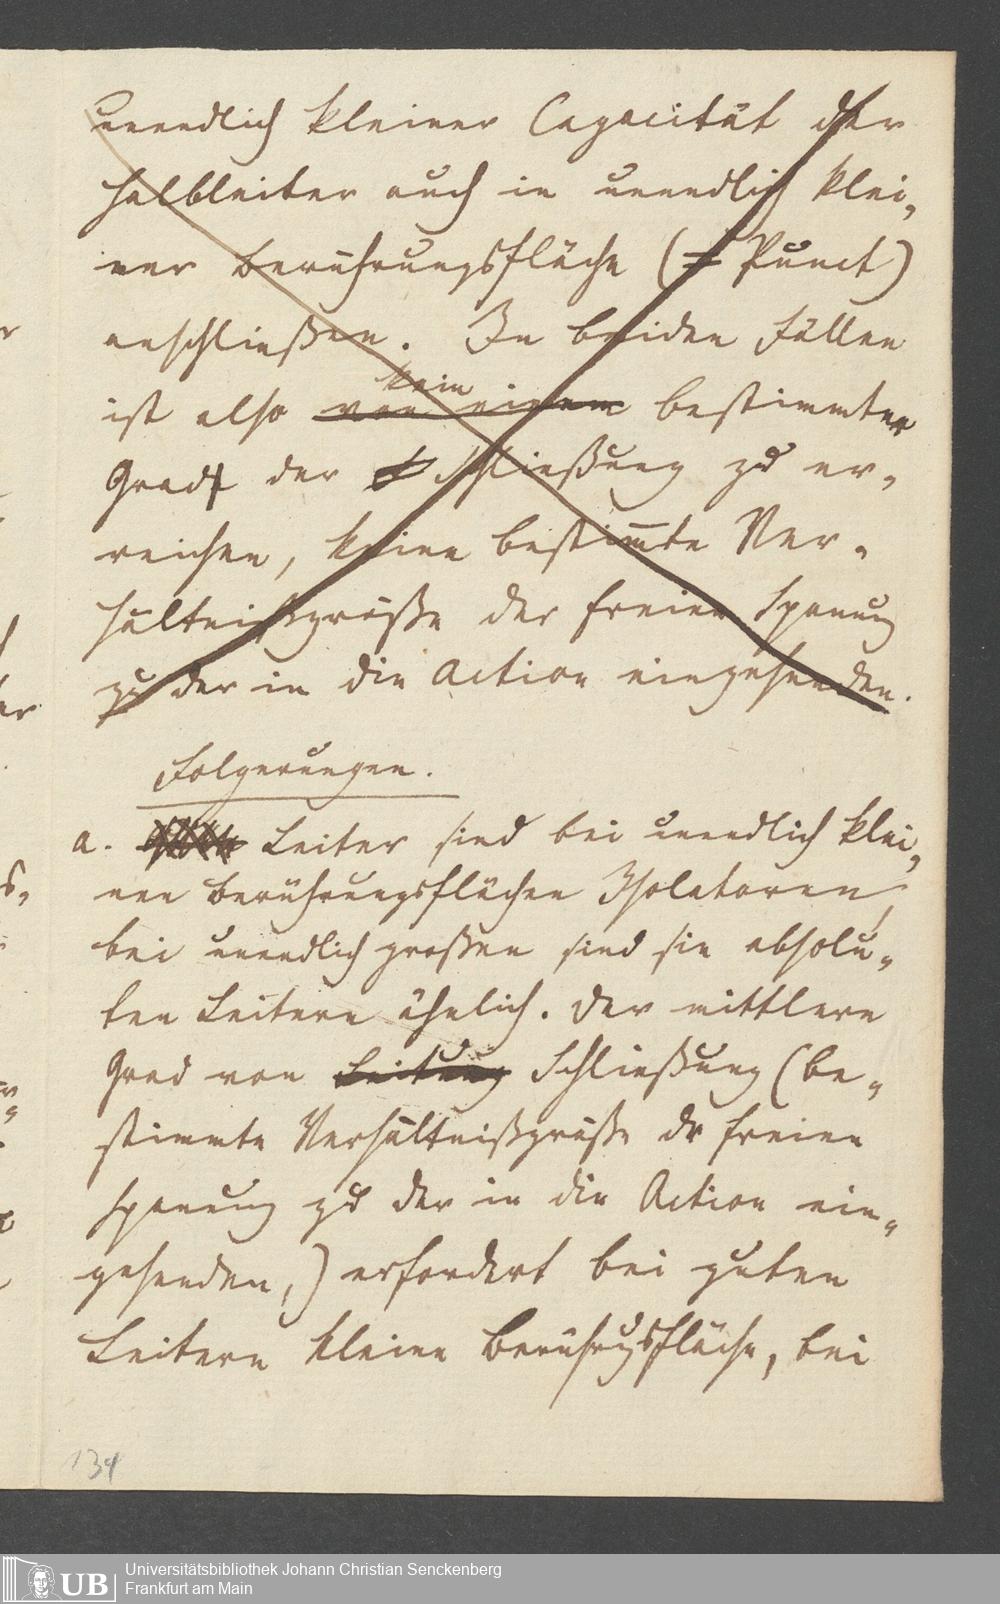 unendlich kleiner Capacität der
Halbleiter auch in unendlich klei„
ner Berührungsfläche (= Punct)
anschließen. In beiden Fällen
kein
ist also von einem bestimmter
Grad der Schließung zu er„
reichen, keine bestim̅te Ver„
hältnißgröße der freien Spanung
zu der in die Action eingehenden.
Folgerungen.
a. Leiter sind bei unendlich klei„
nen Berührungsflächen Isolatoren,
bei unendlich großen sind sie absolu„
ten Leitern ähnlich. Der mittlere
Grad von Leitung Schließung (be„
stimmte Verhältnißgröße dr freien
Spanung zu der in die Action ein„
gehenden,) erfordert bei guten
Leitern kleine Berührungsfläche, bei
134
UB
Universitätsbibliothek Johann Christian Senckenberg
Frankfurt am Main